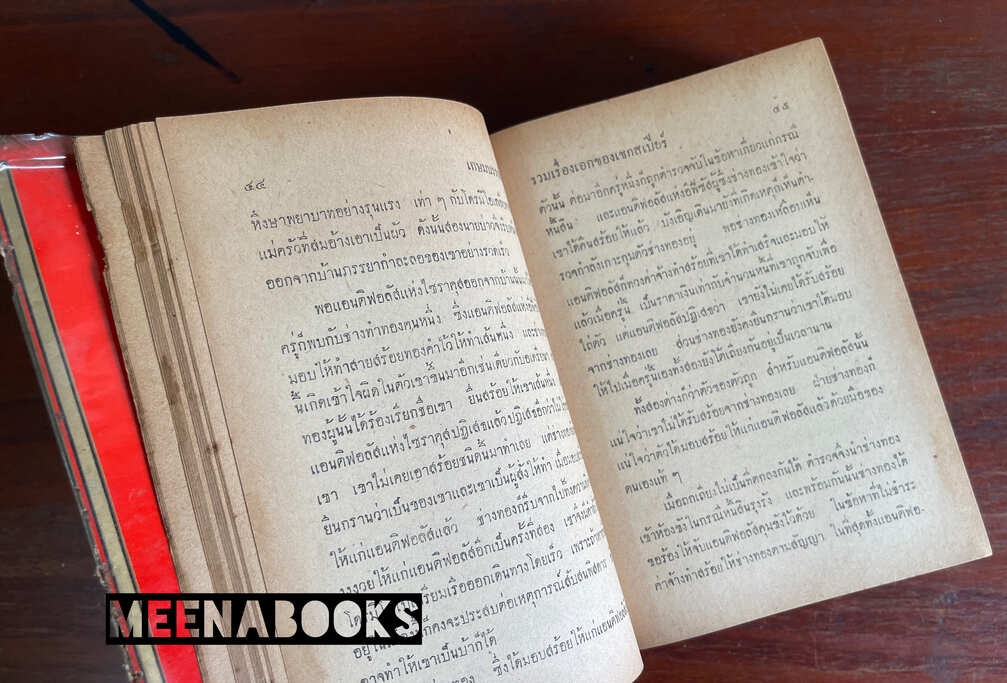 ๔๔
หึงษาพยาบาทอย่างรุนแรง เท่า ๆ กับโดรมิโอ
แม่ครัวที่สมอ้างเอาเป็นผัว ดังนั้นสองนายบ่าว
ออกจากบ้านภรรยากำถะลอของเขาอย่างรวดเร็ว
พอแอนติฟอลัสแห่งไซราคุสออกจากบ้านนั้น
ครู่ก็พบกับช่างทำทองคนหนึ่ง ซึ่งแอนติฟอลัสแห่ง
มอบให้ทำสายสร้อยทองคำไว้ให้ทำเส้นหนึ่ง และ
นี้เกิดเข้าใจผิดในตัวเขาขึ้นมาอีกเช่นเดียวกับ
ทองผู้นั้นได้ร้องเรียกชื่อเขา ยื่นสร้อยให้เขาเส้นหนึ่ง
แอนติฟอลัสแห่งไซราคุสปฏิเสธแล้วปฏิเสธอีกว่า
เขา เขาไม่เคยเอาสร้อยชนิดนี้มาทำเลย แต่ช่าง
ยืนกรานว่าเป็นของเขาและเขาเป็นผู้สั่งให้ทำ
ให้แก่แอนติฟอลัสแล้ว ช่างทองก็รีบจากไป
งงงวยให้แก่แอนติฟอลัสอีกเป็นครั้งที่สอง เขาจึง
โดร เรียมเรือออกเดินทางโดยเร็ว เพราะถ้า
อยู่ใน ก็คงจะประสบต่อเหตุการณ์สับสน
อาจทำให้เขาเป็นบ้าก็ได้
ทอง ซึ่งได้มอบสร้อยให้แก่แอนติฟอลัส
๔๕
รวมเรื่องเอกของเชกสเปียร์
ตัวนั้น ต่อมาอีกครู่หนึ่งก็ถูกตำรวจจับในข้อหาเกี่ยวแก่กรณี
หนี้สิน และแอนติฟอลัสแห่งอีฟิซัสผู้ซึ่งช่างทองเข้าใจว่า
เขาได้คืนสร้อยให้แล้ว บังเอิญเดินมายังที่เกิดเหตุก็เห็นตำ-
รวจกำลังเกาะกุมตัวช่างทองอยู่ พอช่างทองเหลือบเห็น
แอนติฟอลัสก็ทวงค่าจ้างทำสร้อยที่เขาได้ทำเสร็จและมอบให้
แล้วเมื่อครู่นี้ เป็นราคาเงินเท่ากับจำนวนหนี้ที่เขาถูกจับเพื่อ
ไถ่ตัว แต่แอนติฟอลัสปฏิเสธว่า เขายังไม่เคยได้รับสร้อย
จากช่างทองเลย ส่วนช่างทองยังคงยืนกรานว่าเขาได้มอบ
ให้ไปเมื่อครู่นี้เองทั้งสองยังได้เถียงกันอยู่เป็นเวลานาน
ทั้งสองต่างก็ว่าตัวของตัวถูก สำหรับแอนติฟอลัสนั้น
แน่ใจว่าเขาไม่ได้รับสร้อยจากช่างทองเลย ฝ่ายช่างทองก็
แน่ใจว่าตัวได้มอบสร้อยให้แก่แอนติฟอลัสแล้วด้วยมือของ
ตนเองแท้ ๆ
เมื่อถกเถียงไม่เป็นที่ตกลงกันได้ ตำรวจจึงนำช่างทอง
เข้าห้องขังในกรณีหนี้สินรุงรัง และพร้อมกันนั้นช่างทองได้
ขอร้องให้จับแอนติฟอลัสคุมขังไว้ด้วย ในข้อหาที่ไม่ชำระ
ค่าจ้างทำสร้อยให้ช่างทองตามสัญญา ในที่สุดทั้งแอนติฟอ-
MEENABOOKS